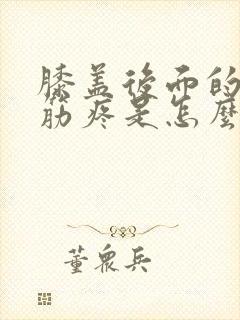 膝盖後面的
筋疼是怎麼
董眾兵